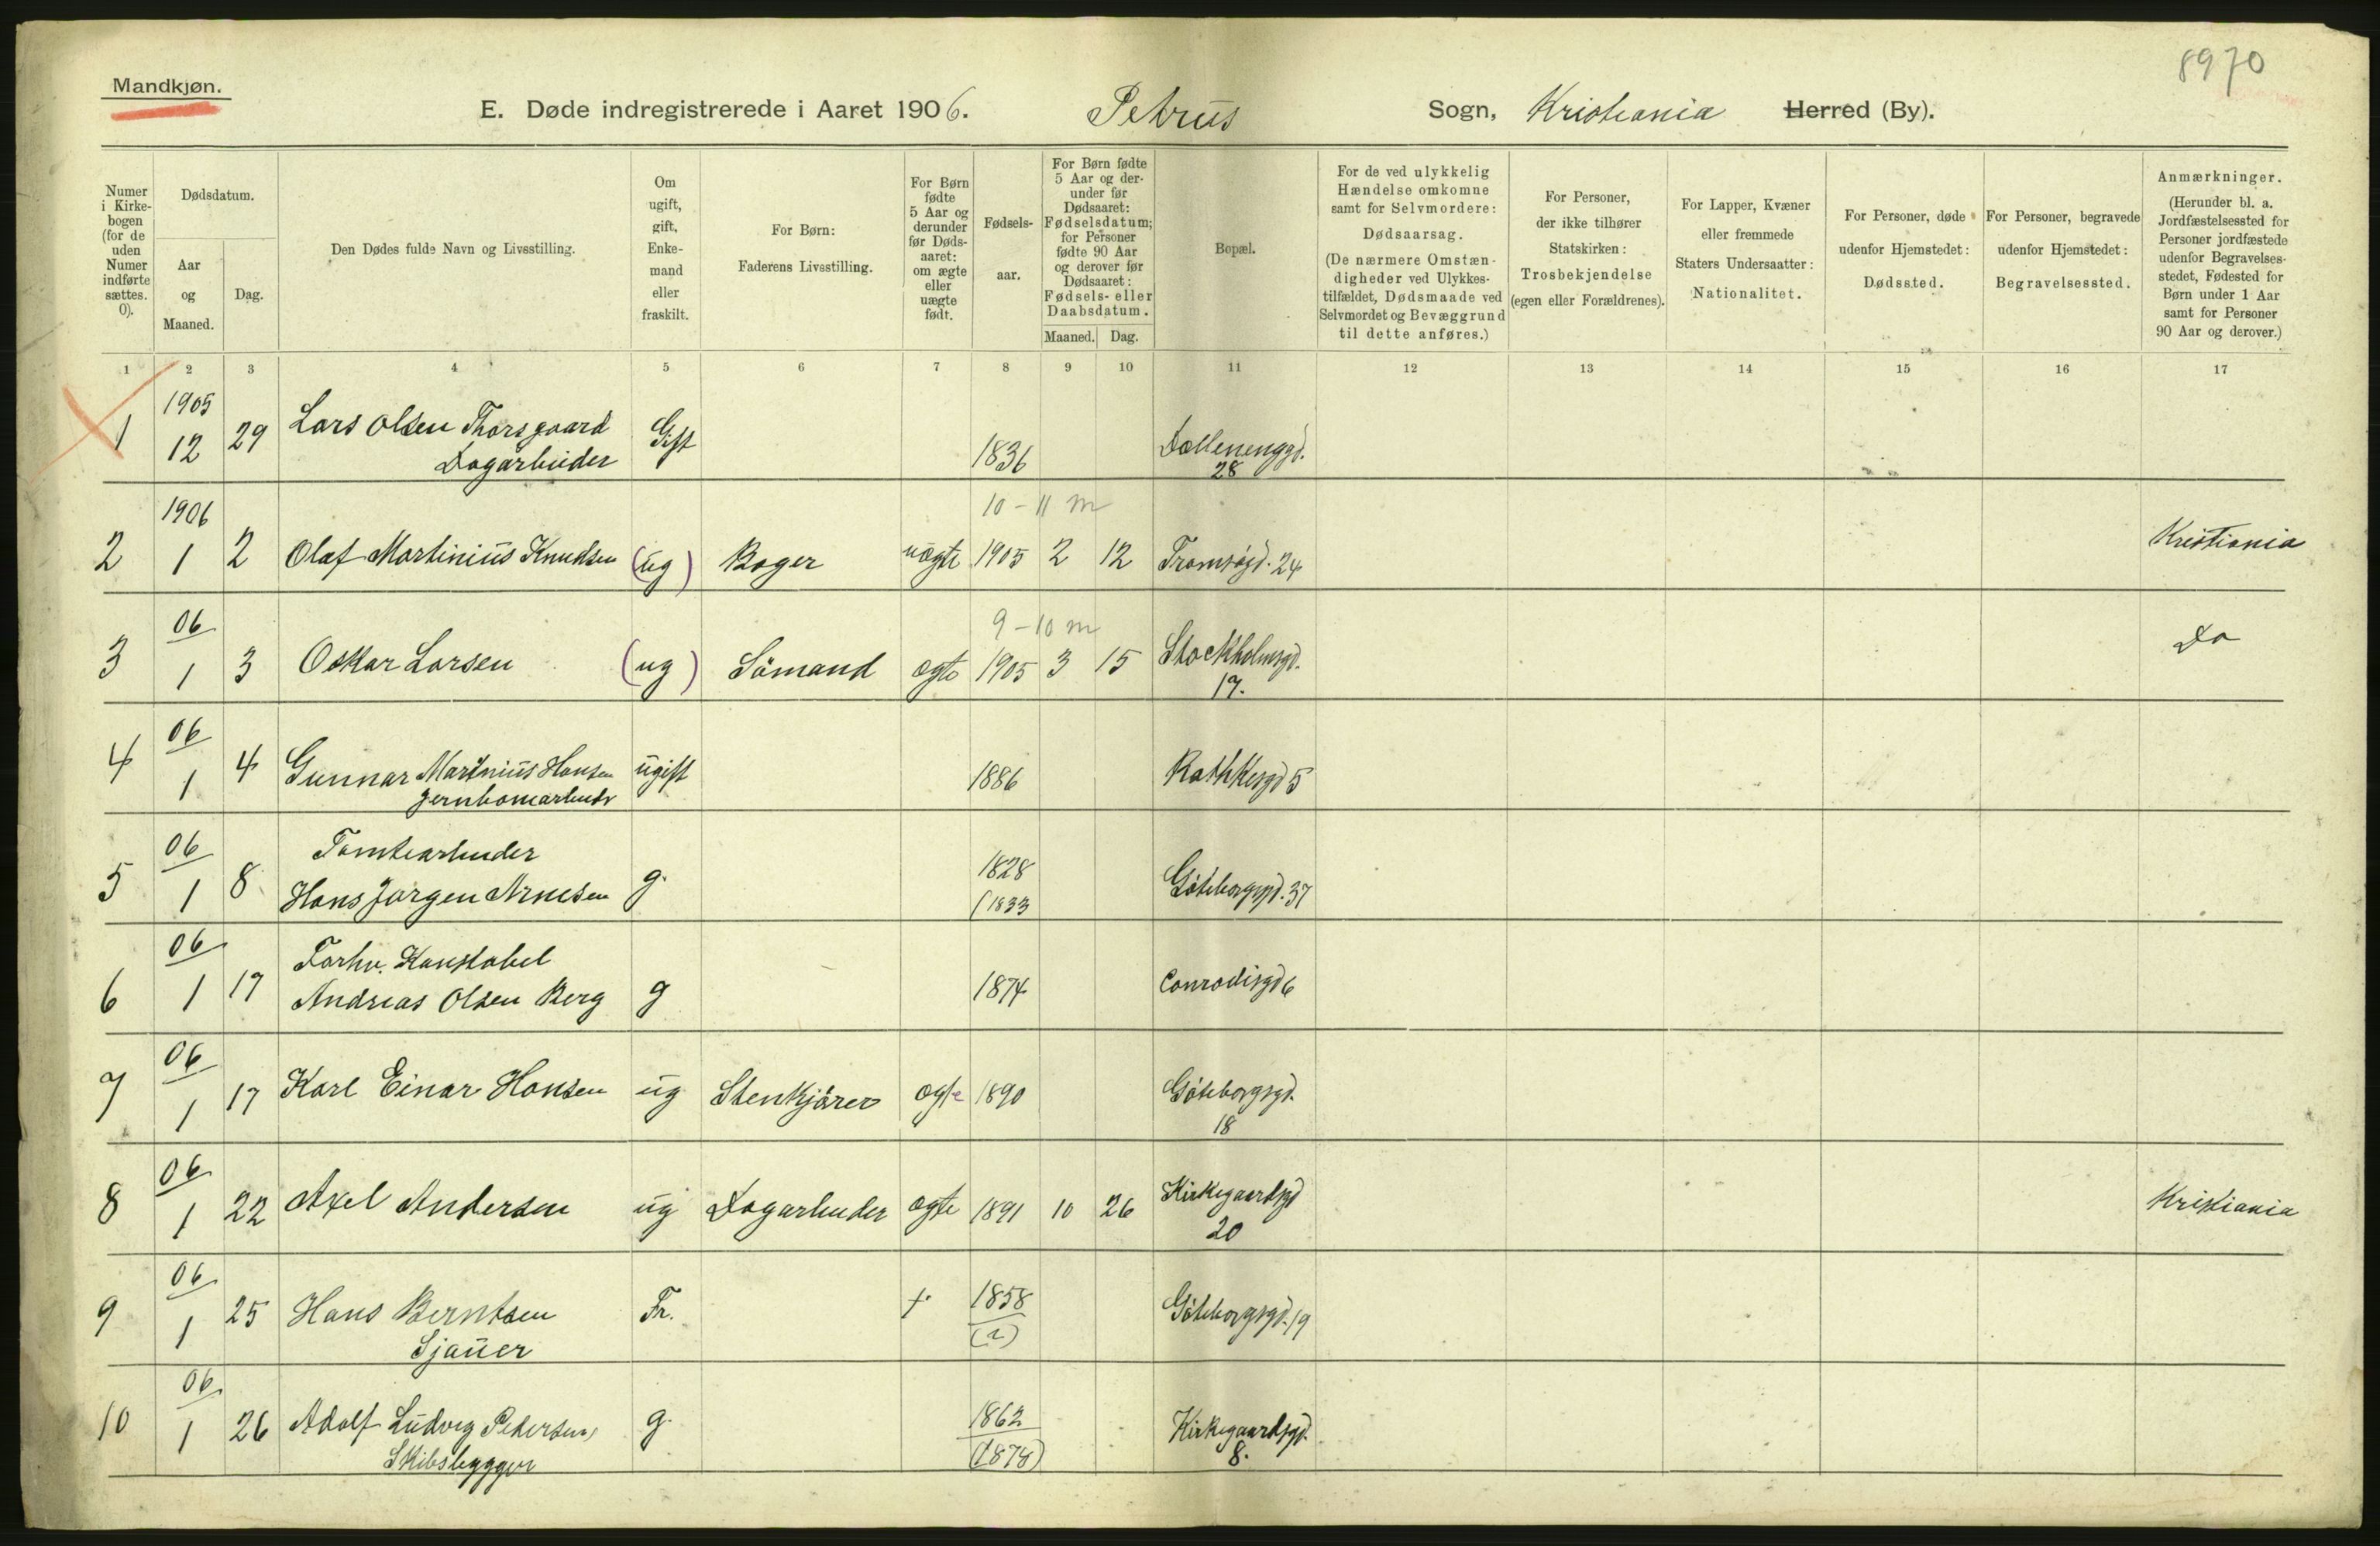 8970
Mandkjøn.
E. Døde indregistrerede i Aaret 1906. Petrus Sogn, Kristiania Herred (By).
Numer i Kirkebogen (for de uden Numer indførte sættes. 0).
Dødsdatum.
Aar og Maaned.
Dag.
Den Dødes fulde Navn og Livsstilling.
Om ugift, gift, Enkemand eller fraskilt.
For Børn: Faderens Livsstilling.
For Børn fødte 5 Aar og derunder før Dødsaaret: om ægte eller uægte født.
Fødselsaar.
For Børn fødte 5 Aar og derunder før Dødsaaret: Fødselsdatum; for Personer fødte 90 Aar og derover før Dødsaaret: Fødsels- eller Daabsdatum.
Maaned. Dag.
Bopæl.
For de ved ulykkelig Hændelse omkomne samt for Selvmordere: Dødsaarsag. (De nærmere Omstændigheder ved Ulykkestilfældet, Dødsmaade ved Selvmordet og Bevæggrund til dette anføres.)
For Personer, der ikke tilhører Statskirken: Trosbekjendelse (egen eller Forældrenes).
For Lapper, Kvæner eller fremmede Staters Undersaatter: Nationalitet.
For Personer, døde udenfor Hjemstedet: Dødssted.
For Personer, begravede udenfor Hjemstedet: Begravelsessted.
Anmærkninger. (Herunder bl. a. Jordfæstelsessted for Personer jordfæstede udenfor Begravelsesstedet, Fødested for Børn under 1 Aar samt for Personer 90 Aar og derover.)
1 2 3 4 5 6 7 8 9 10 11 12 13 14 15 16 17
1905
1 12 29 Lars Olsen Thorsgaard Gift 1836 Dællenenggd.
Dagarbeider 28
1906 10 - 11 m
2 1 2 Olaf Martinius Knudsen (ug) Bager uægte 1905 2 12 Tromsøgd. 24 Kristiania
06 9 - 10 m
3 1 3 Oskar Larsen (ug) Sömand ægte 1905 3 15 Stockholmsgd. Do
17.
06
4 1 4 Gunnar Martinius Hansen ugift 1886 Rathkesgd 5
Jernbanearbeider
06 Tomtearbeider 1828
5 1 8 Hans Jørgen Arnesen g. (1833 Göteborgsgd. 37
06 Forhv. Konstabel
6 1 17 Andreas Olsen Berg g 1874 Conradisgd 6
06
7 1 17 Karl Einar Hansen ug Stenkjører ægte 1890 Göteborgsgd.
18
06
8 1 22 Axel Andersen ug Dagarbeider ægte 1891 10 26 Kirkegaardsgd Kristiania
20
06
9 1 25 Hans Berntsen Fr. + 1858 Göteborgsgd. 19
Sjauer
06
10 1 26 Adolf Ludvig Pedersen g. 1862 Kirkegaardsgd.
Skibsbygger (1878) 8.